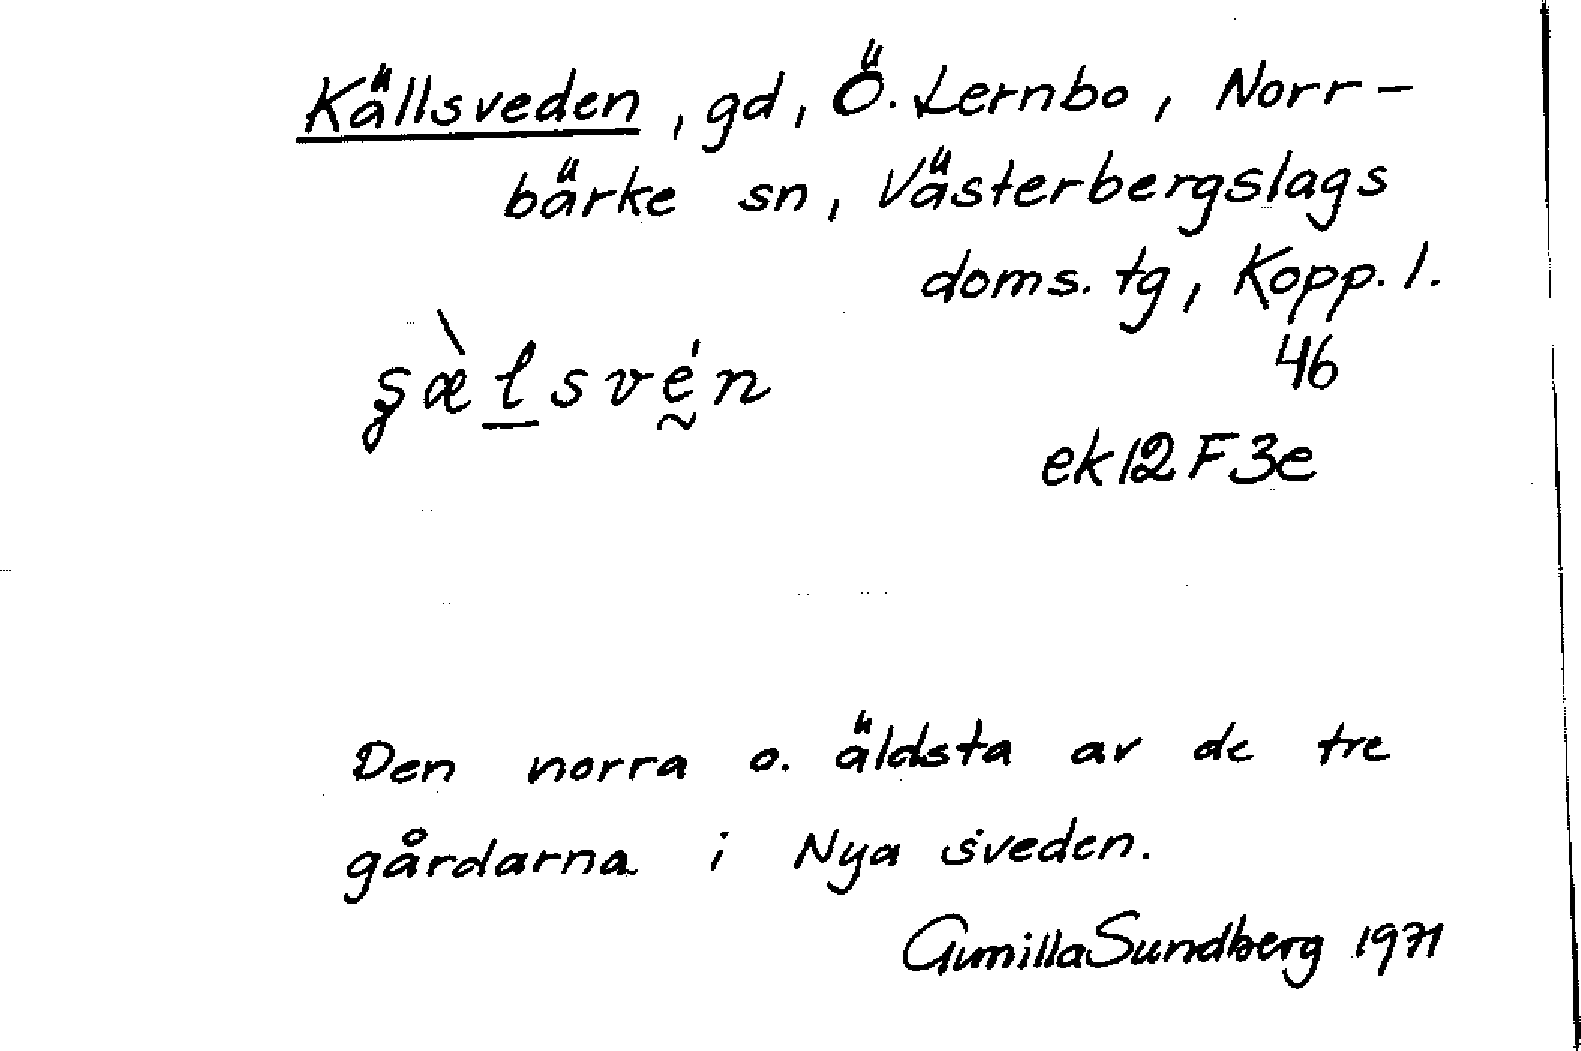 Källsveden, gd, Ö. Lernbo, Norr-
bärke sn, Västerbergslags
doms. tg, Kopp. l.
46
ek12F3e
Den norra o. äldsta av de tre
gårdarna i Nya sveden.
Gunilla Sundberg 1971